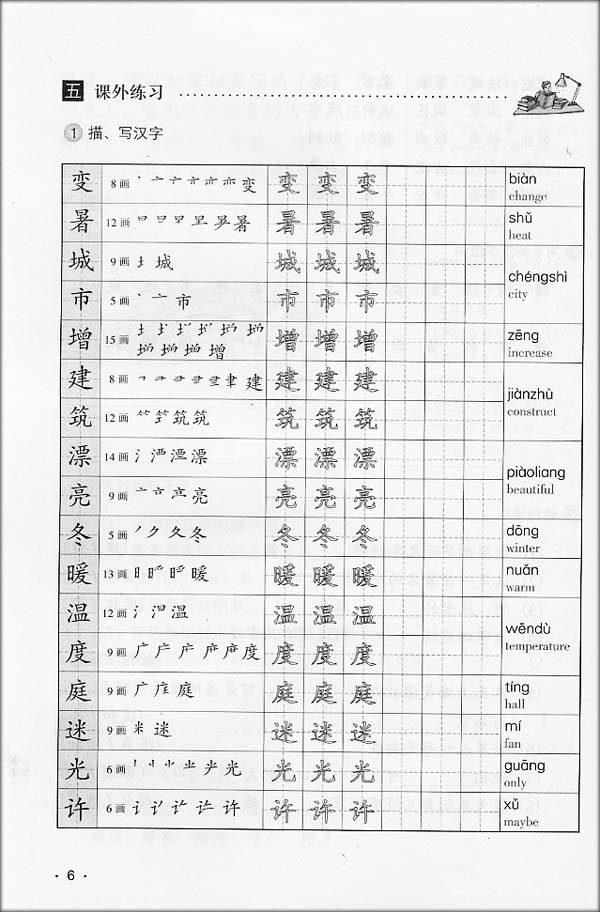 五 课外练习
1 描、写汉字
变 8画 变 变 变 变 biàn change
暑 12画 暑 暑 暑 暑 shǔ heat
城 9画 城 城 城 城 chéngshì city
市 5画 市 市 市 市
增 15画 增 增 增 增 zēng increase
建 8画 建 建 建 建 jiànzhù construct
筑 12画 筑 筑 筑 筑 筑
漂 14画 漂 漂 漂 漂 piàoliang beautiful
亮 9画 亮 亮 亮 亮
冬 5画 夂 冬 冬 冬 冬 dōng winter
暖 13画 暖 暖 暖 暖 nuǎn warm
温 12画 氵 温 温 温 温 wēndù temperature
度 9画 广 度 度 度 度
庭 9画 广 庭 庭 庭 庭 tíng hall
迷 9画 米 迷 迷 迷 迷 mí fan
光 6画 光 光 光 光 guāng only
许 6画 许 许 许 许 xǔ maybe
· 6 ·